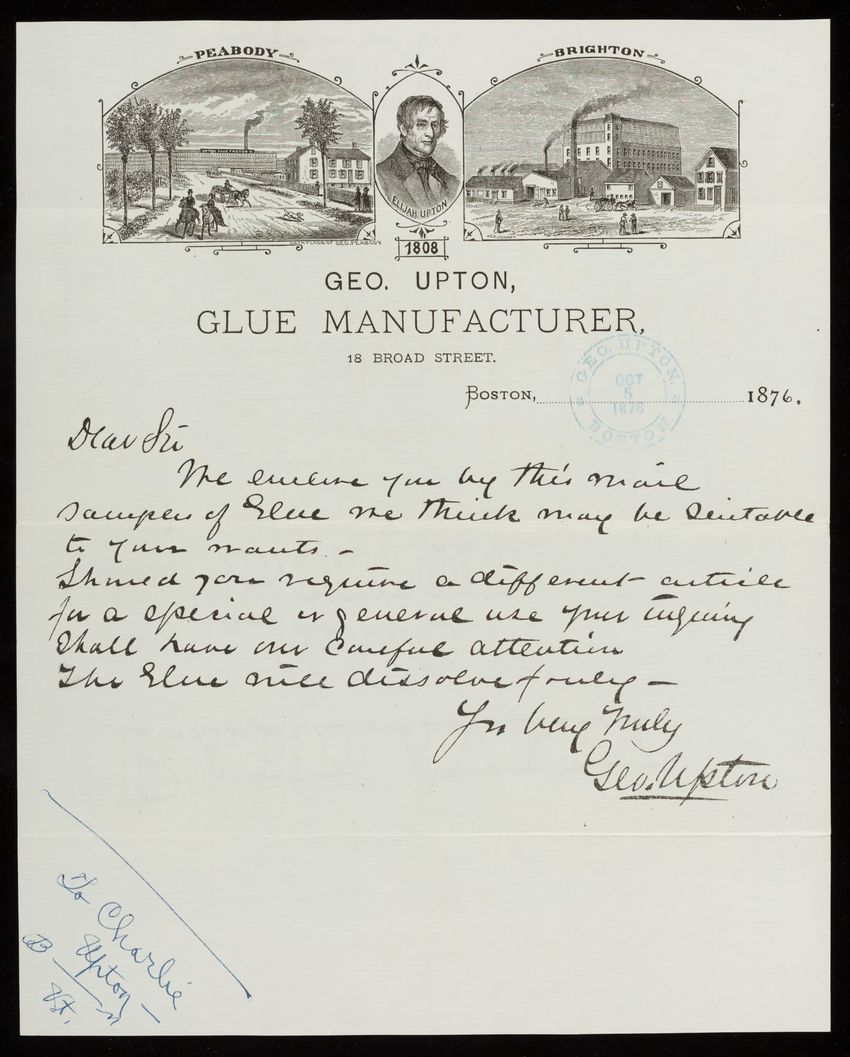 PEABODY
BRIGHTON
ELIJAH UPTON
BIRTHPLACE OF GEO. PEABODY
1808
GEO. UPTON,
GLUE MANUFACTURER,
18 BROAD STREET.
BOSTON, 1876.
GEO. UPTON.
OCT
5
1876
BOSTON
Dear Sir
We enclose you by this mail
samples of Glue we think may be suitable
to your wants. –
Should you require a different article
for a special or general use your inquiry
shall have our careful attention
The Glue will dissolve freely –
Yrs very truly
Geo. Upton
To Charlie
Upton –
B
St.